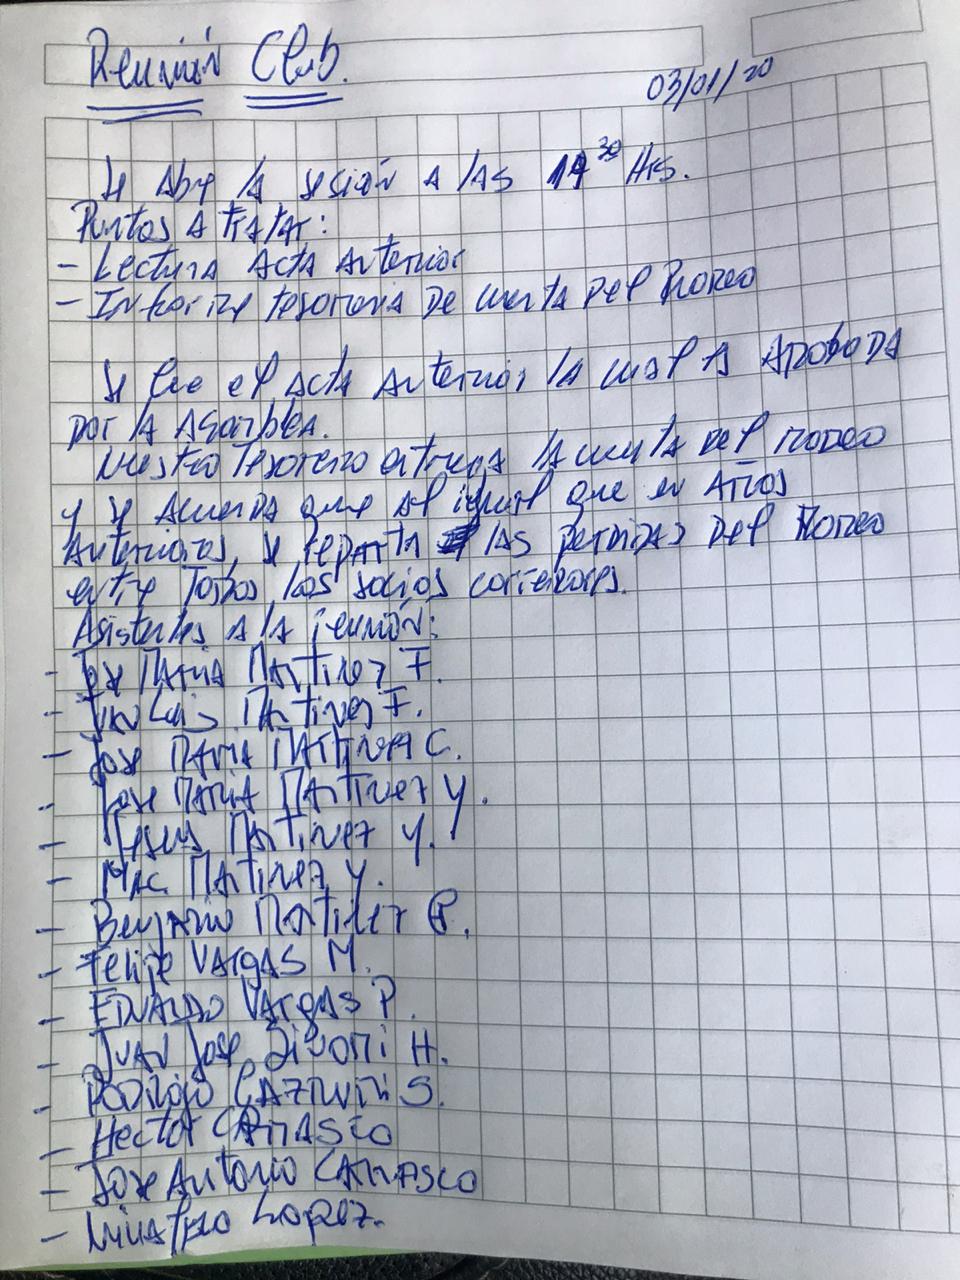 Reunión Club.
03/01/20
Se Abre la sesión A las 19 30 Hrs.
Puntos A tratar:
- Lectura Acta Anterior
- Informe tesoreria De cuenta Del Rodeo
Se lee el Acta Anterior la cual es Aprobada
por la Asamblea.
Nuestro Tesorero entrega la cuenta del rodeo
y se Acuerda que al igual que en Años
Anteriores, se reparta las perdidas Del Rodeo
entre Todos los socios corredores.
Asistentes a la reunión:
- Jose Maria Martinez F.
- Juan Luis Martinez F.
- Jose Maria Martinez C.
- Jose Maria Martinez Y.
- Jesus Martinez Y.
- Mac. Martinez Y.
- Benjamin Martinez
- Felipe Vargas M.
- Eduardo Vargas P.
- Juan Jose Sivori H.
- Rodrigo Cazzulini S.
- Hector Carrasco
- Jose Antonio Carrasco
- Lopez.